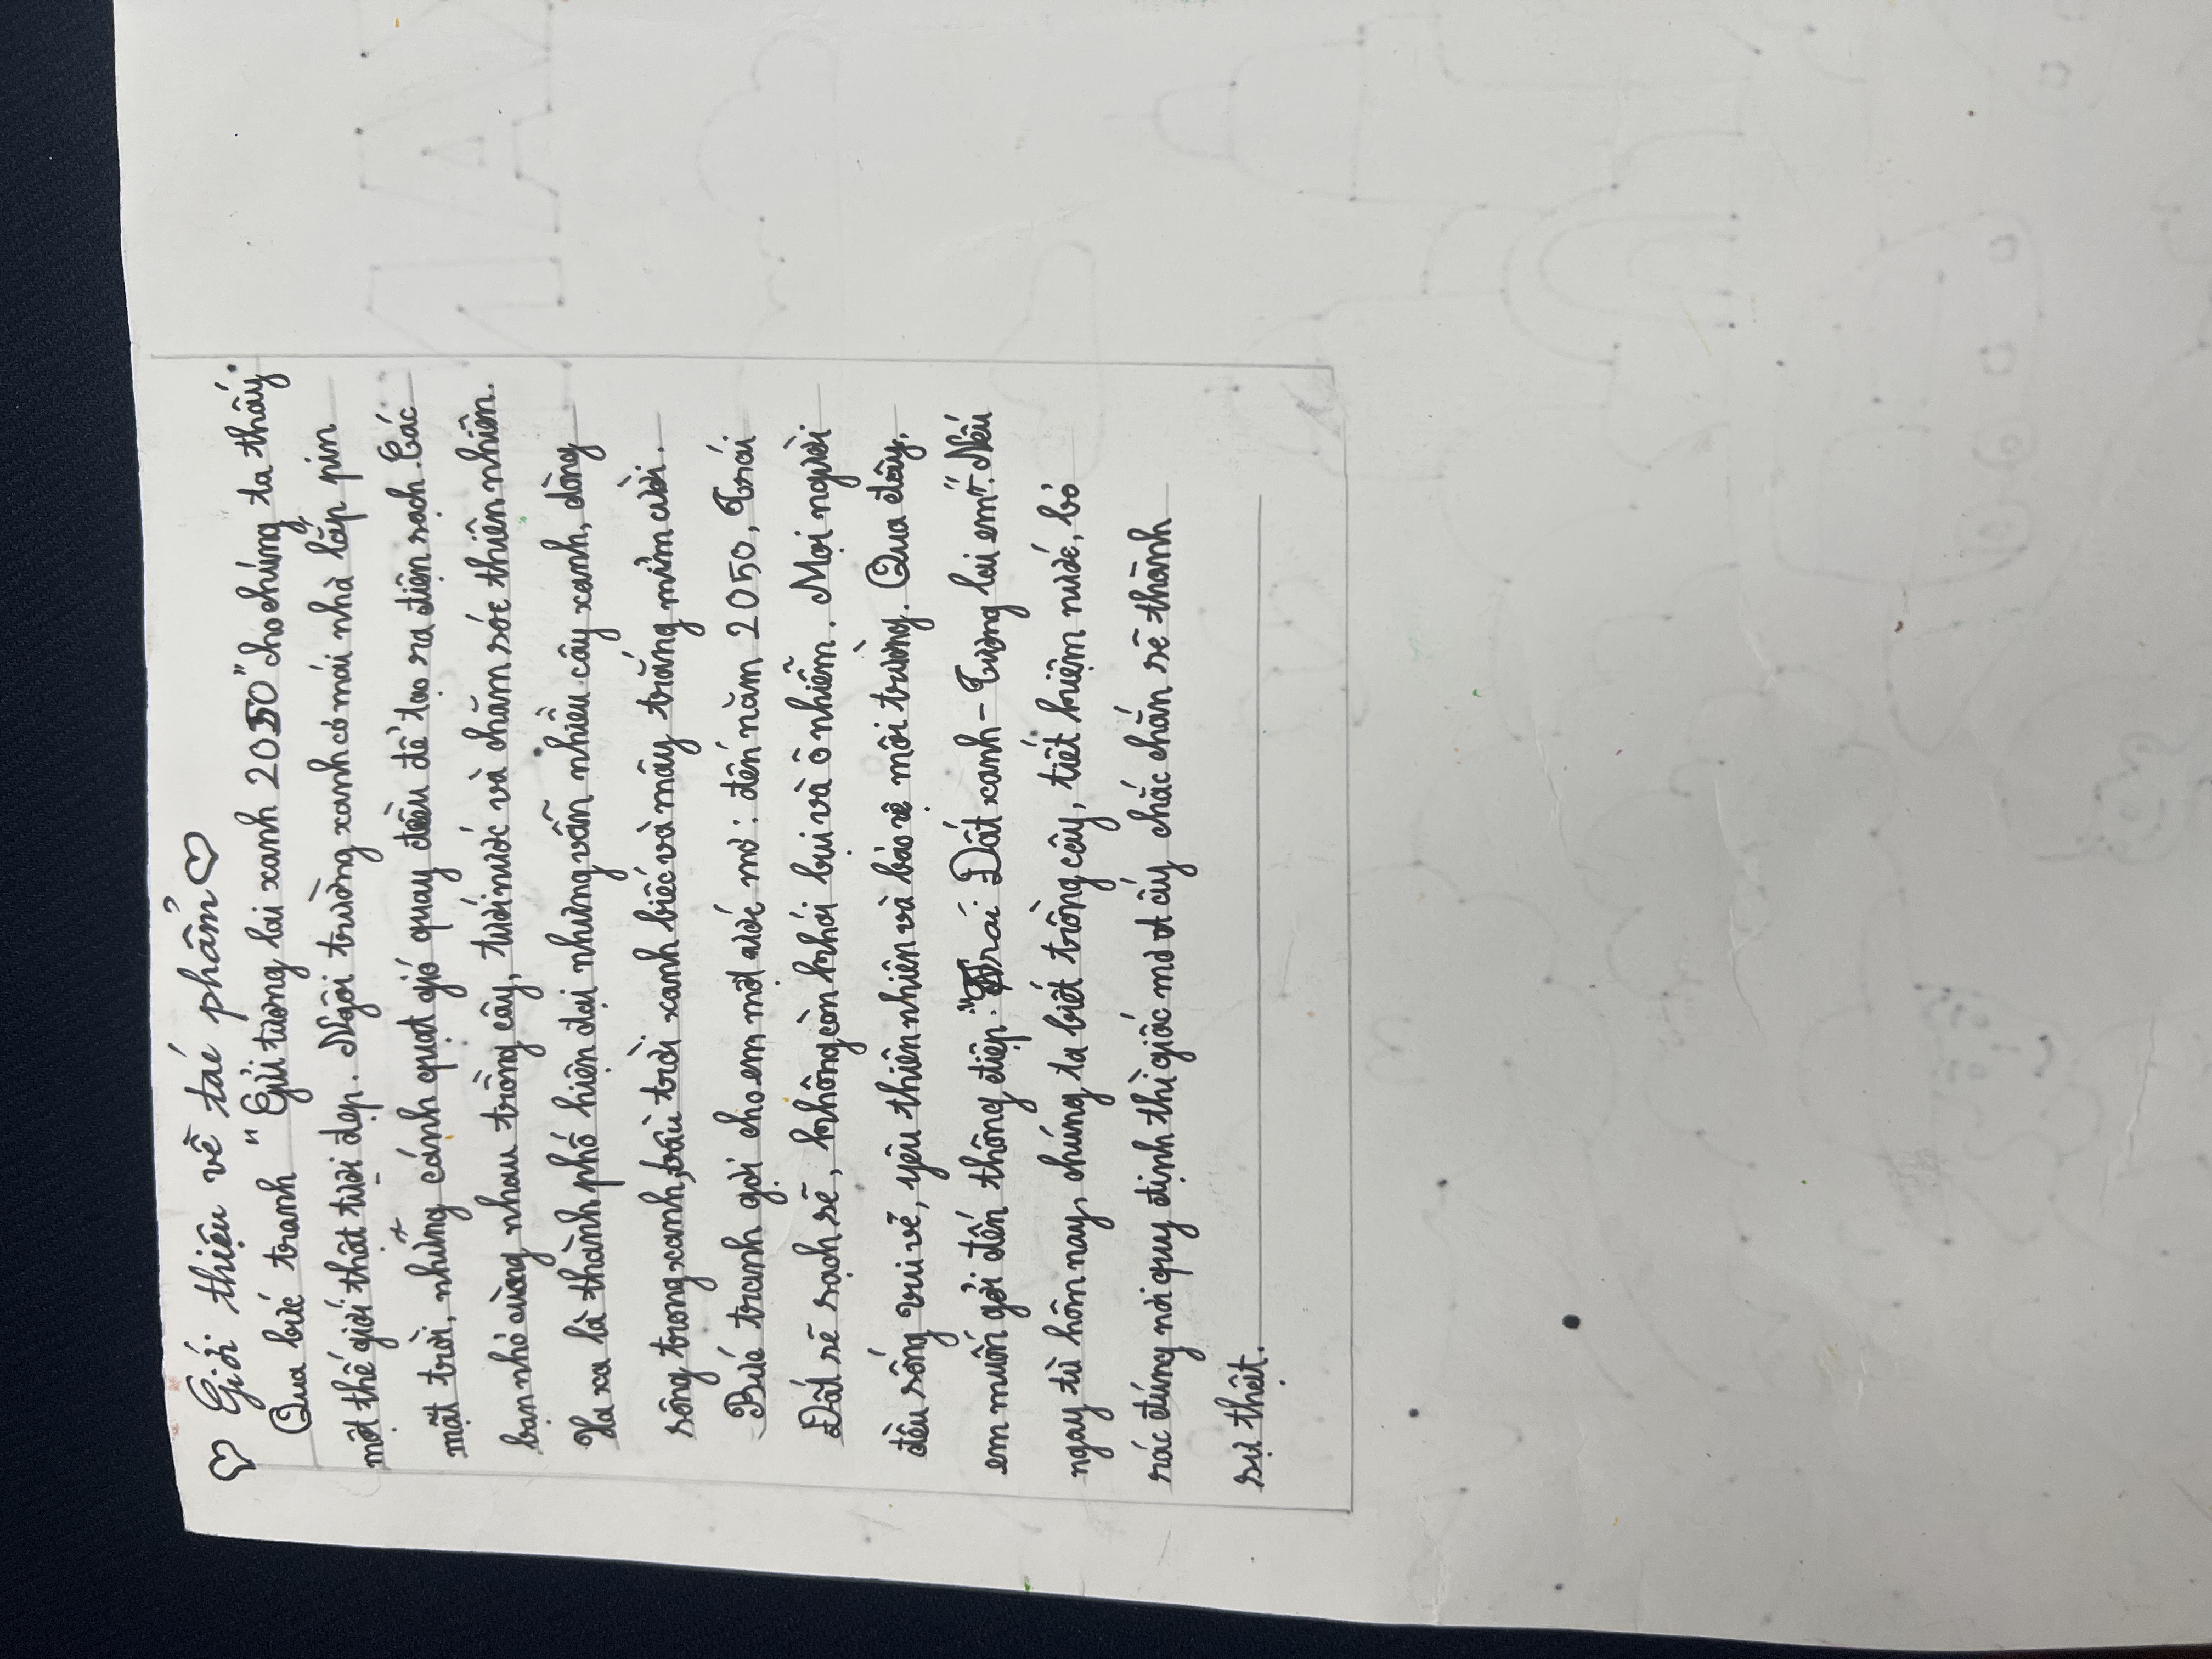 ♡ Giới thiệu về tác phẩm ♡
Qua bức tranh " Gửi tương lai xanh 2050" cho chúng ta thấy
một thế giới thật tươi đẹp. Ngôi trường xanh có mái nhà lắp pin
mặt trời, những cánh quạt gió quay đều để tạo ra điện sạch. Các
bạn nhỏ cùng nhau trồng cây, tưới nước và chăm sóc thiên nhiên.
Xa xa là thành phố hiện đại nhưng vẫn nhiều cây xanh, dòng
sông trong xanh, bầu trời xanh biếc và mây trắng mỉm cười.
Bức tranh gợi cho em một ước mơ: đến năm 2050, Trái
Đất sẽ sạch sẽ, không còn khói bụi và ô nhiễm. Mọi người
đều sống vui vẻ, yêu thiên nhiên và bảo vệ môi trường. Qua đây,
em muốn gởi đến thông điệp: "Trái Đất xanh - Tương lai em". Nếu
ngay từ hôm nay, chúng ta biết trồng cây, tiết kiệm nước, bỏ
rác đúng nơi quy định thì giấc mơ ấy chắc chắn sẽ thành
sự thật.